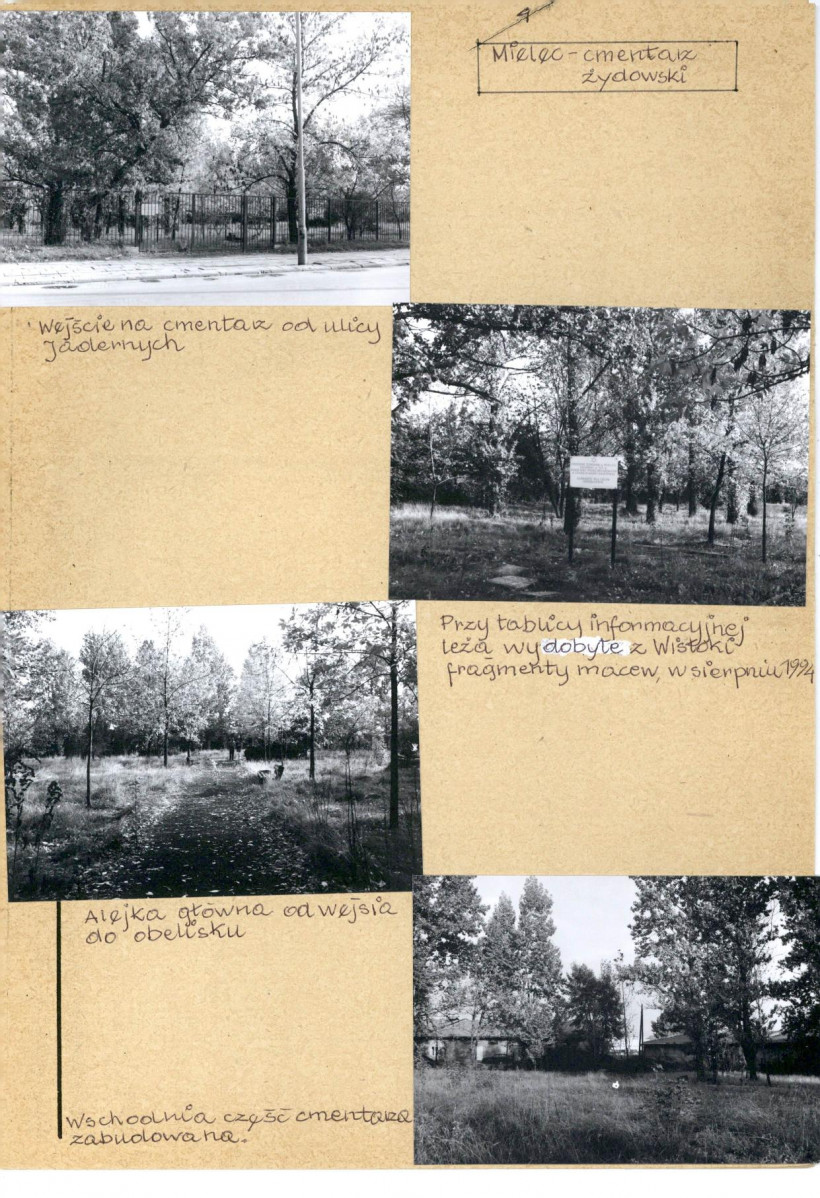 Mielec - cmentarz
żydowski
Wejście na cmentarz od ulicy
Jadernych
Przy tablicy informacyjnej
leżą wydobyte z Wisłoki
fragmenty macew, w sierpniu 1994
Alejka główna od wejsia
do obelisku
Wschodnia część cmentarza
zabudowana.